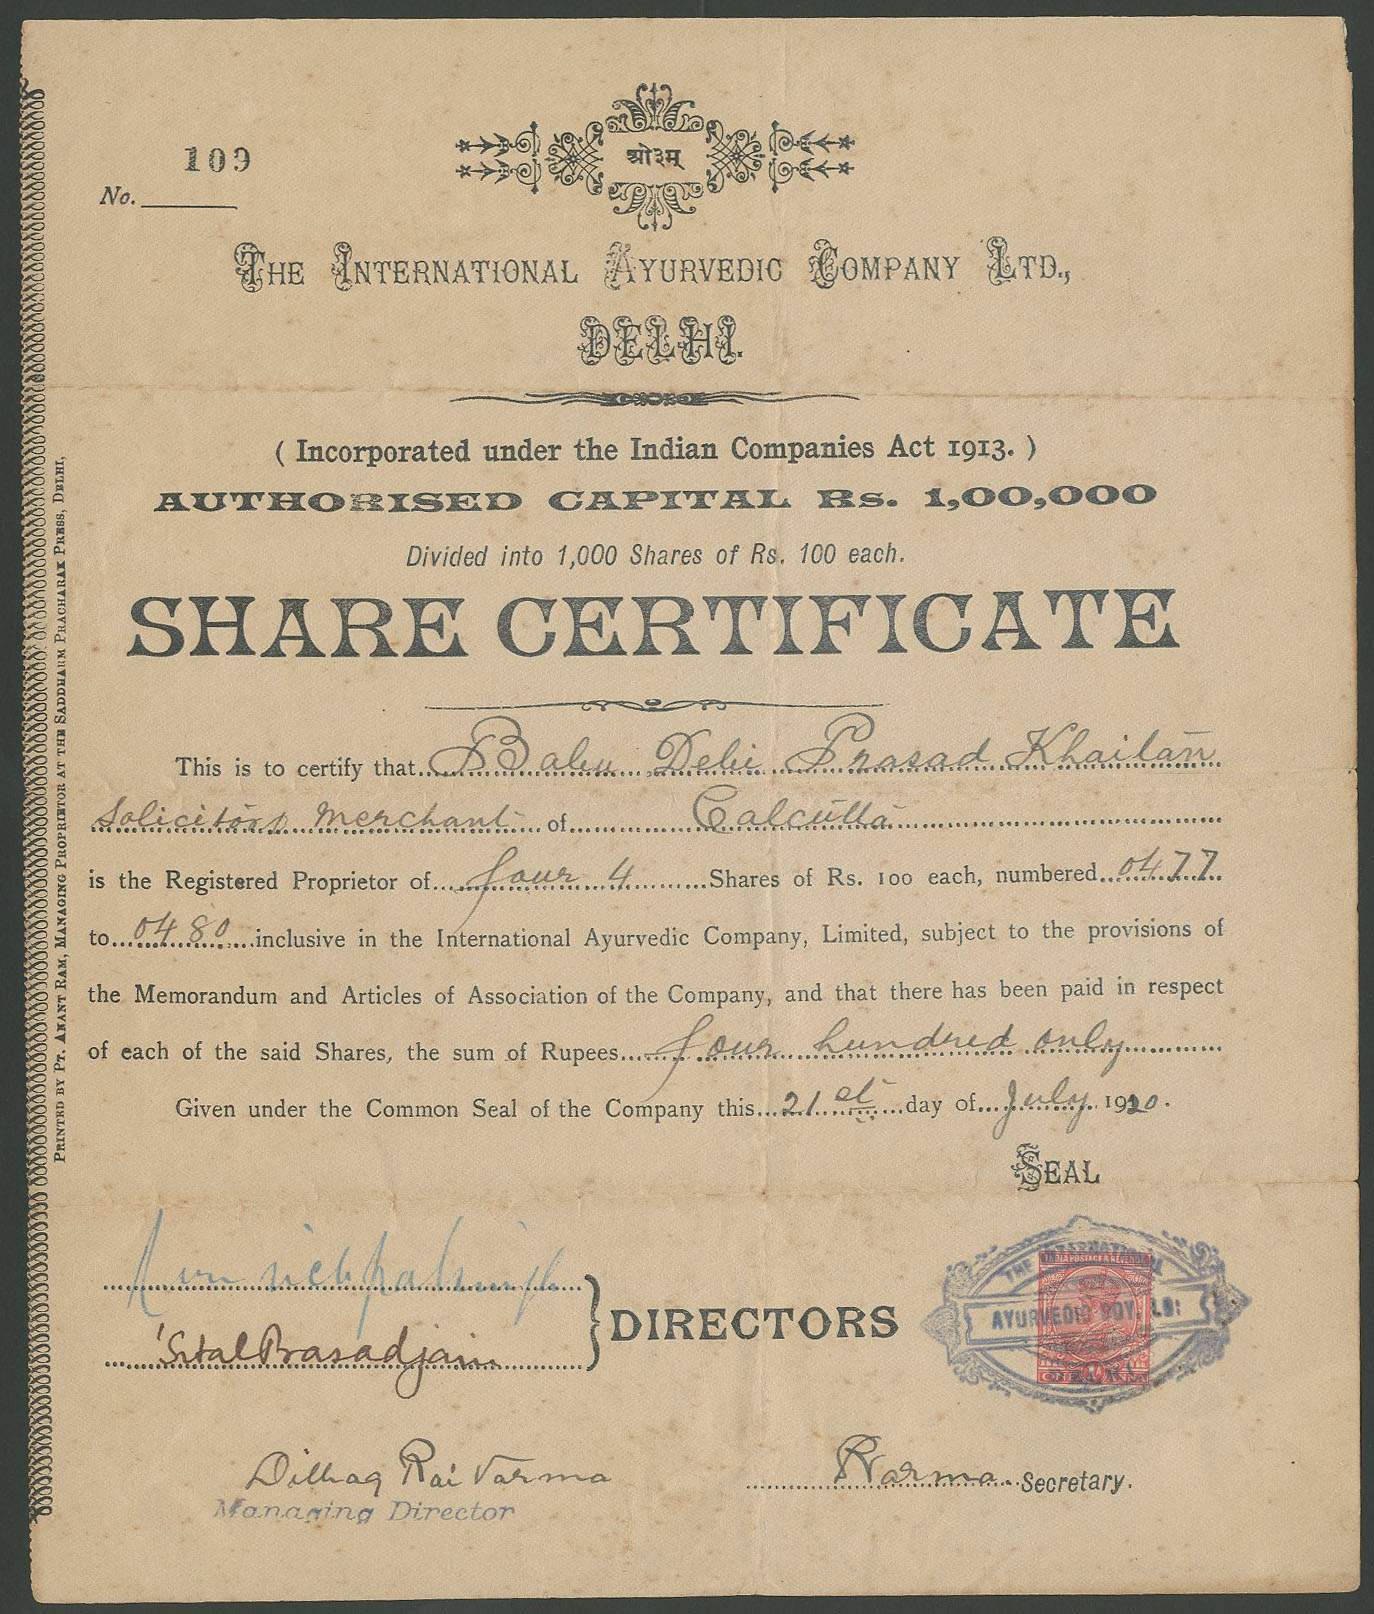 ओ३म्
109
No.
THE INTERNATIONAL AYURVEDIC COMPANY LTD.,
DELHI.
( Incorporated under the Indian Companies Act 1913. )
AUTHORISED CAPITAL Rs. 1,00,000
Divided into 1,000 Shares of Rs. 100 each.
SHARE CERTIFICATE
This is to certify that Babu Debi Prasad Khaitan
Solicitors Merchant of Calcutta
is the Registered Proprietor of four 4 Shares of Rs. 100 each, numbered 0477
to 0480 inclusive in the International Ayurvedic Company, Limited, subject to the provisions of
the Memorandum and Articles of Association of the Company, and that there has been paid in respect
of each of the said Shares, the sum of Rupees four hundred only
Given under the Common Seal of the Company this 21st day of July 1920.
SEAL
THE INTERNATIONAL
AYURVEDIC COY. LD:
INDIA POSTAGE & REVENUE
ONE ANNA
Sital Prasad Jain
DIRECTORS
Dilbag Rai Varma
Managing Director
Secretary.
PRINTED BY PT. ANANT RAM, MANAGING PROPRIETOR AT THE SADDHARM PRACHARAK PRESS, DELHI,